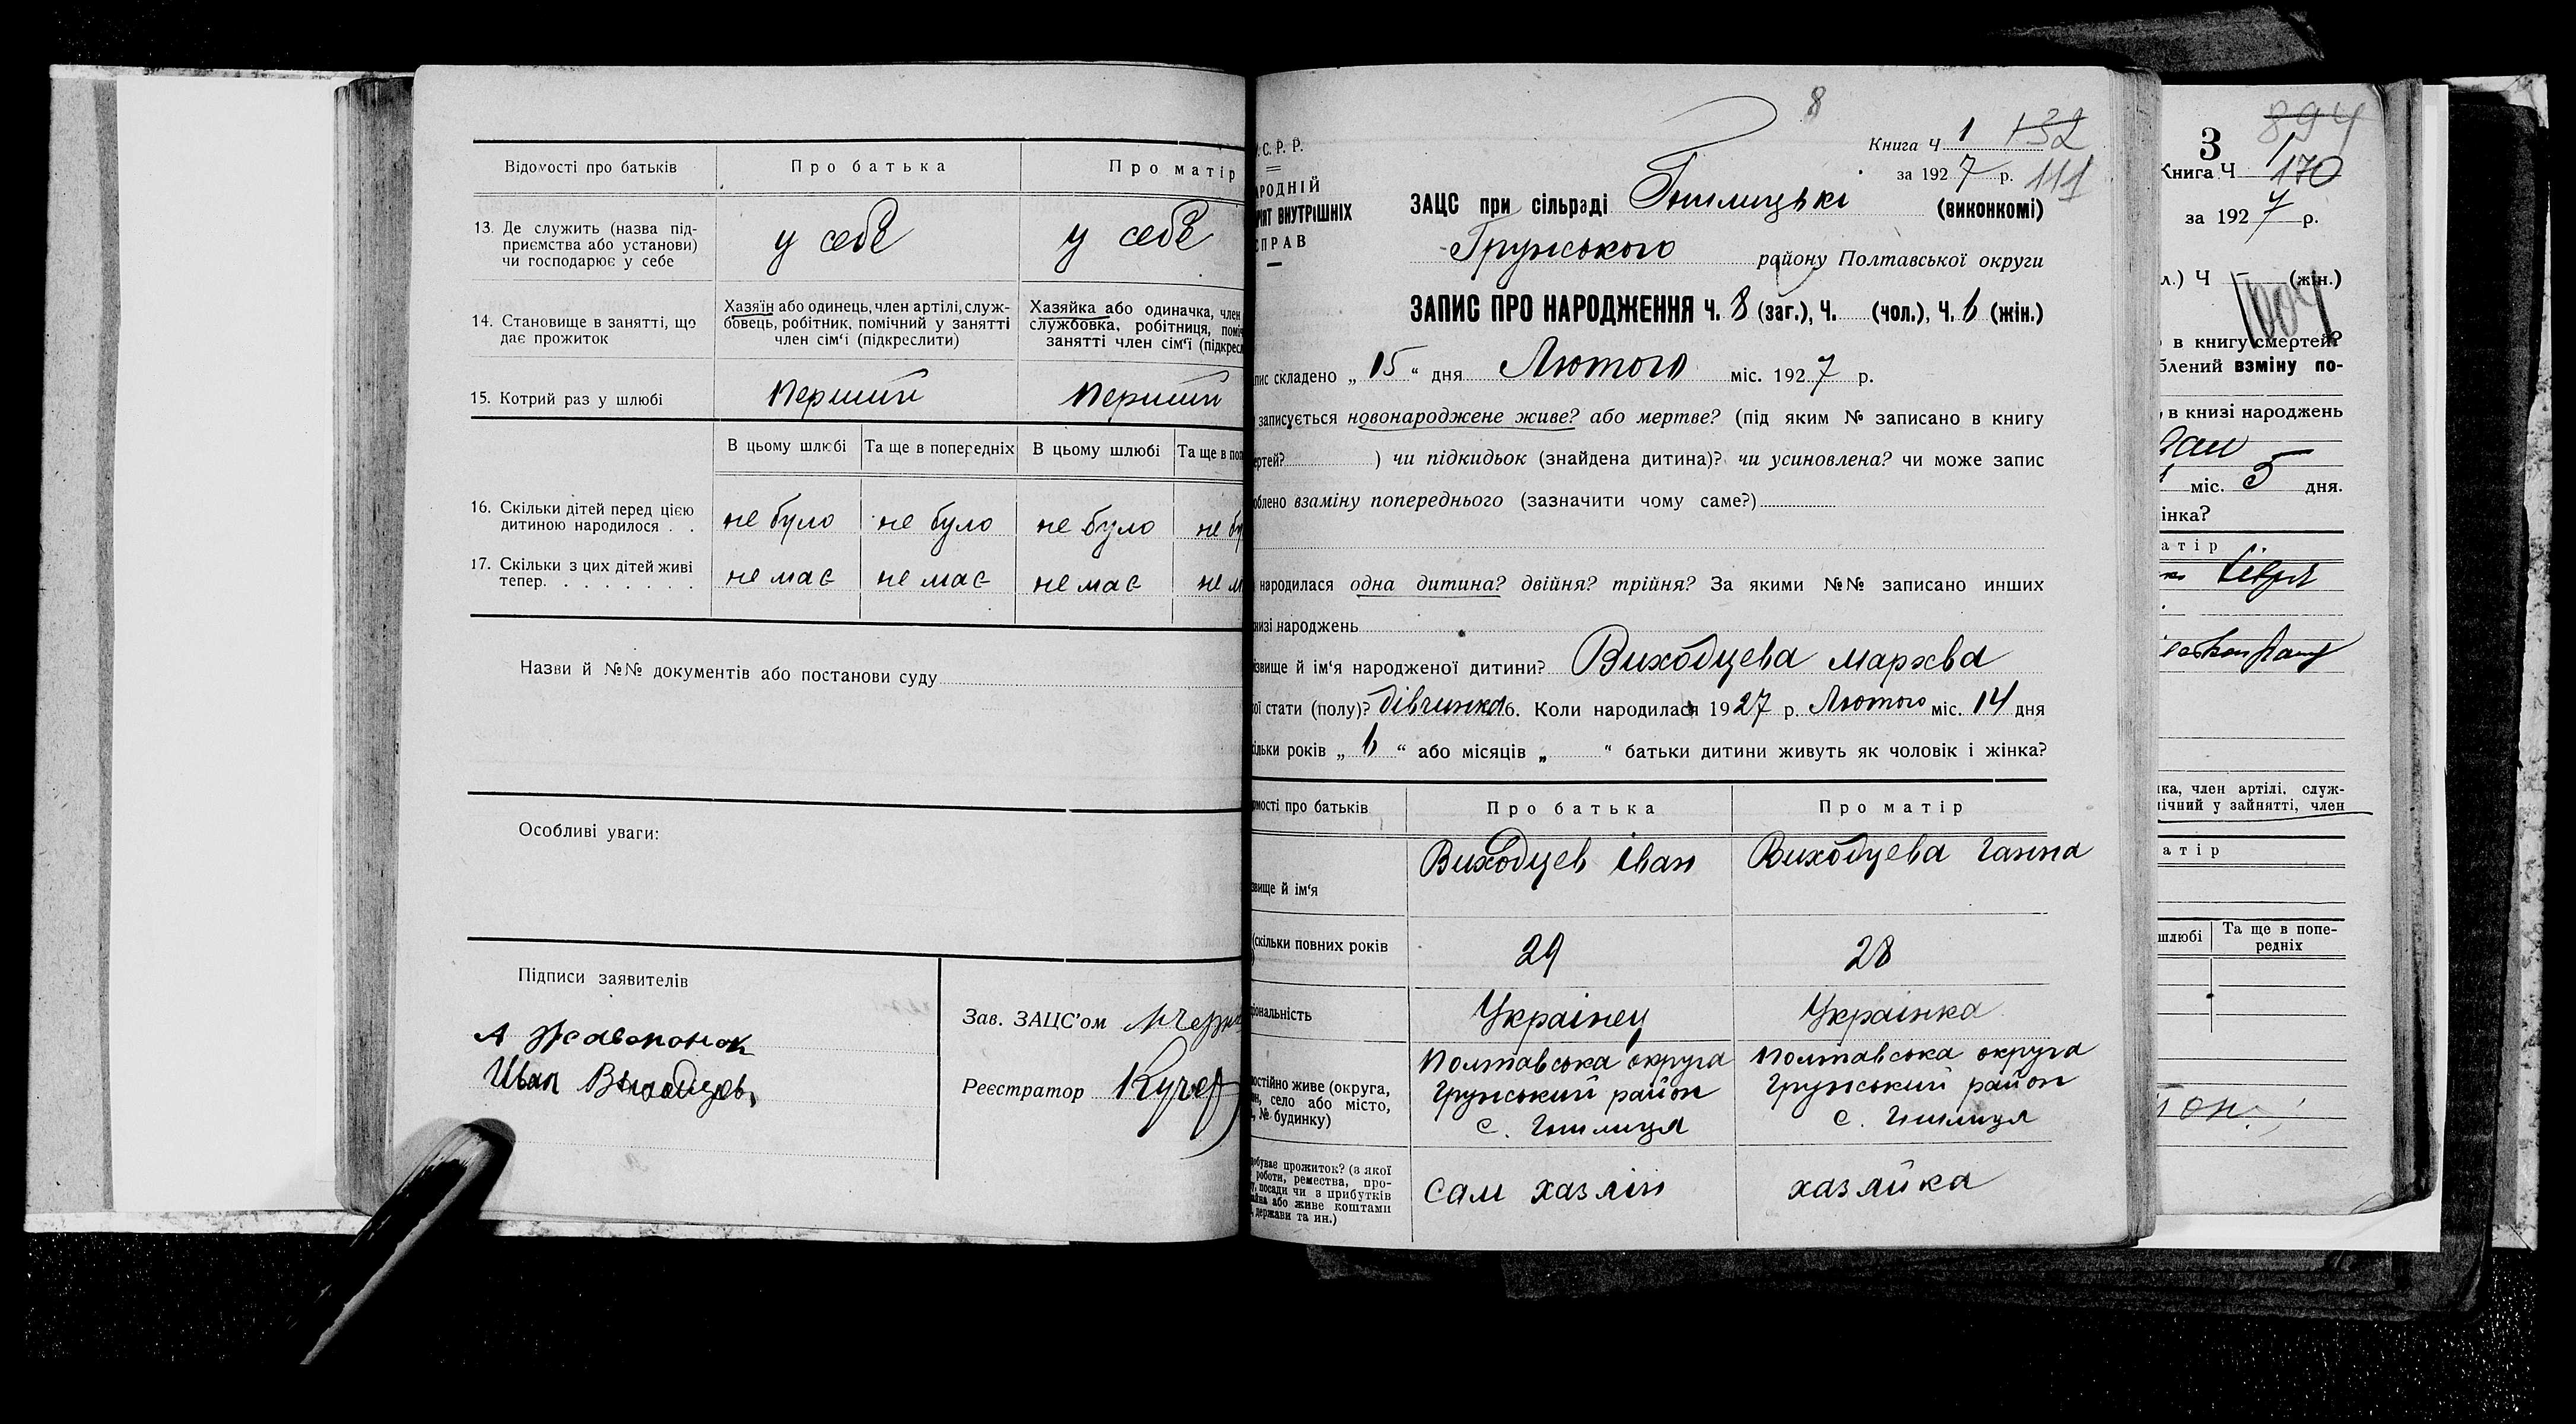 Відомості про батьків
Про батька
Про матір
13. Де служить (назва під-
приємства або установи)
чи господарює у себе
у себе
у себе
14. Становище в занятті, що
дає прожиток
Хазяїн або одинець, член артілі, служ-
бовець, робітник, помічний у занятті
член сім'ї (підкреслити)
Хазяйка або одиначка, член
службовка, робітниця, поміч
занятті член сім'ї (підкресл
15. Котрий раз у шлюбі
перший
перший
В цьому шлюбі
Та ще в попередніх
В цьому шлюбі
Та ще в поп
16. Скільки дітей перед цією
дитиною народилося . .
не було
не було
не було
не бу
17. Скільки з цих дітей живі
тепер. . . . . . . .
не має
не має
не має
не м
Назви й №№ документів або постанови суду
Особливі уваги:
Підписи заявителів
А Жаворонок
Иван Выходцев
Зав. ЗАЦС'ом
Реєстратор Кучер
8
.С.Р.Р.
РОДНІЙ
РІЯТ ВНУТРІШНІХ
СПРАВ
Книга Ч 1 132
за 1927 р. 111
ЗАЦС при сільраді Гнилицькі (виконкомі)
Грунського району Полтавської округи
ЗАПИС ПРО НАРОДЖЕННЯ Ч. 8 (заг.), Ч. (чол.), Ч. 6 (жін.)
пис складено „ 15 “ дня Лютого міс. 1927 р.
записується новонароджене живе? або мертве? (під яким № записано в книгу
ертей? ) чи підкидьок (знайдена дитина)? чи усиновлена? чи може запис
облено взаміну попереднього (зазначити чому саме?)
народилася одна дитина? двійня? трійня? За якими №№ записано инших
книзі народжень
ізвище й ім'я народженої дитини? Виходцева Мархва
ої стати (полу)? дівчинка 6. Коли народилася 1927 р. Лютого міс. 14 дня
кільки років „ 6 “ або місяців „ “ батьки дитини живуть як чоловік і жінка?
омості про батьків
Про батька
Про матір
звище й ім'я
Виходцев Іван
Виходцева Ганна
(скільки повних років
29
28
іональність
Українец
Українка
постійно живе (округа,
н, село або місто,
, № будинку)
Полтавська округа
Грунський район
с. Гнилиця
Полтавська округа
Грунський район
с. Гнилиця
добуває прожиток? (з якої
роботи, ремества, про-
у, посади чи з прибутків
айна або живе коштами
, держави та ин.)
сам хазяїн
хазяйка
894
3
Книга Ч 1
170
за 1927 р.
л.) Ч (жін.)
в книгу смертей?
блений взміну по-
, в книзі народжень
міс. 5 дня.
інка?
атір
ка, член артілі. служ-
мічний у зайнятті, член
атір
шлюбі
Та ще в попе-
редніх